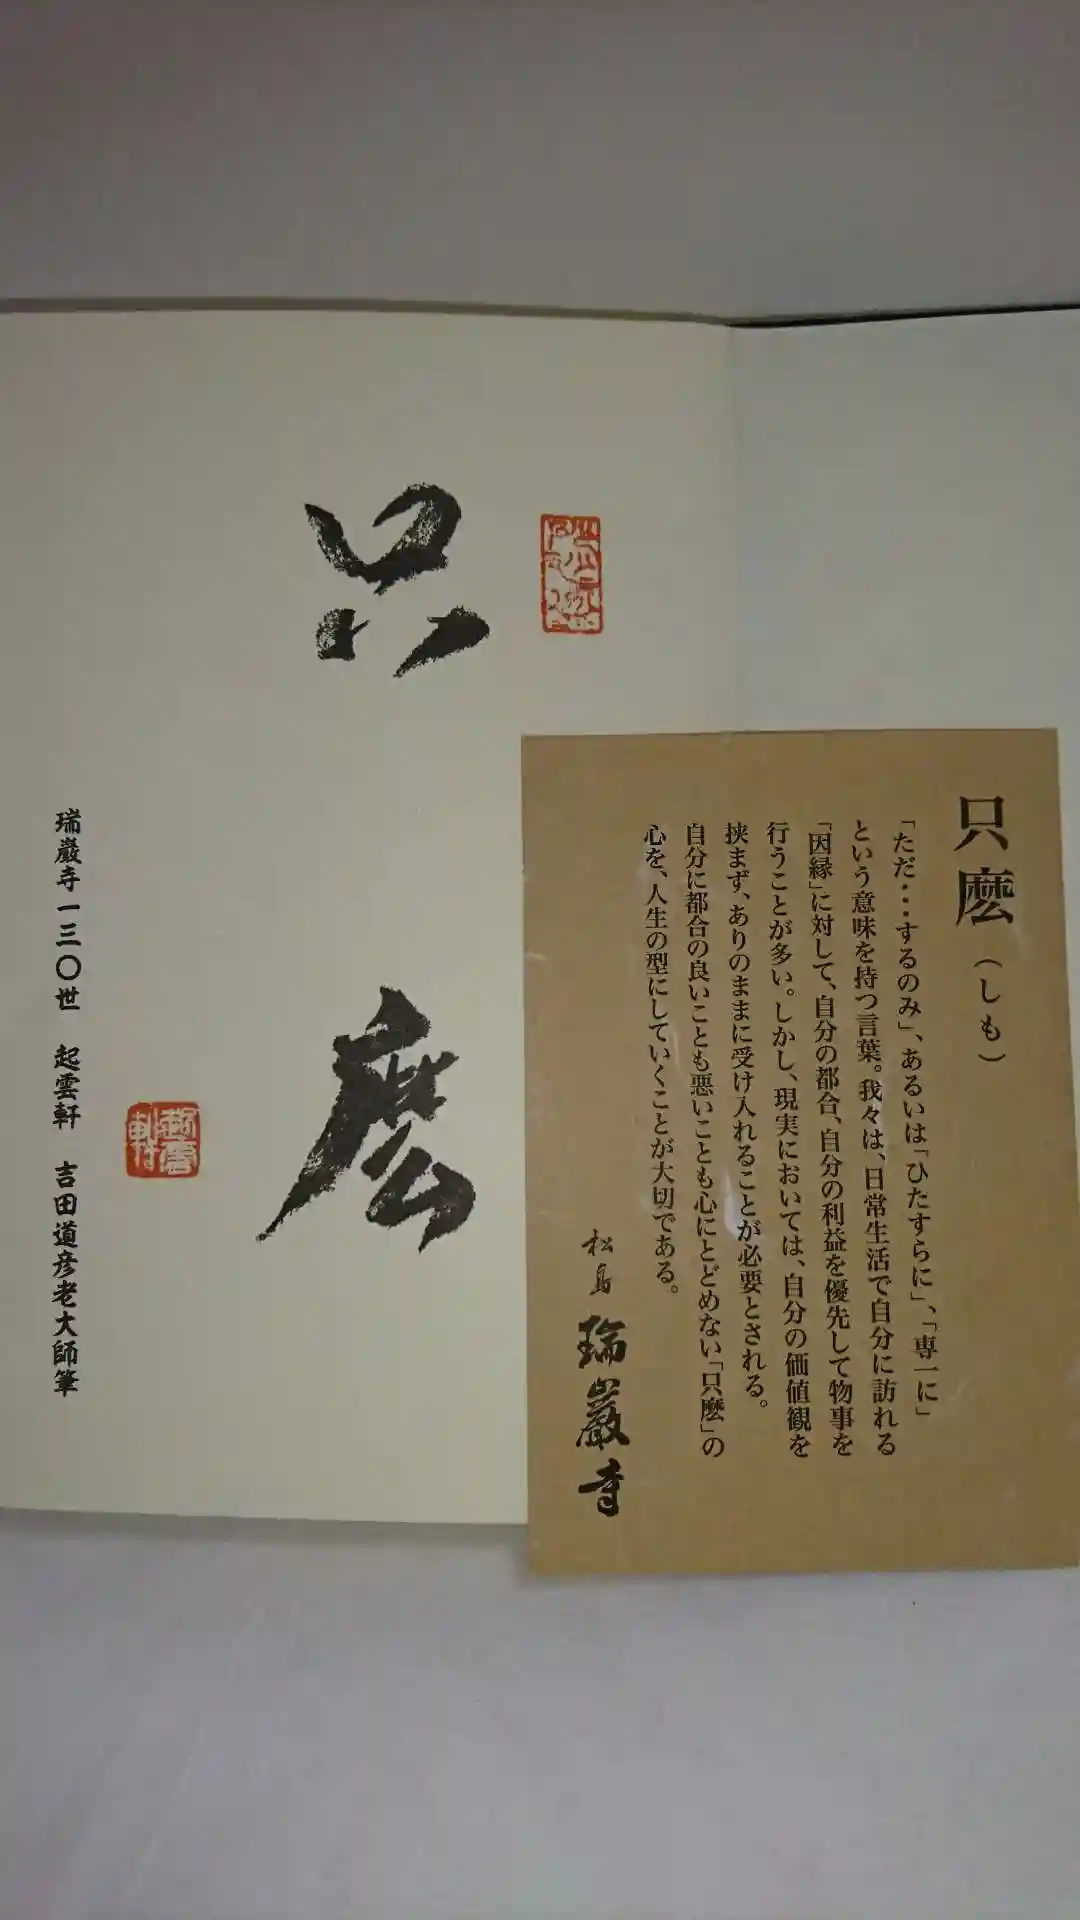 只麼
(しも)
「ただ・・・するのみ」、あるいは「ひたすらに」、「専一に」
という意味を持つ言葉。我々は、日常生活で自分に訪れる
「因縁」に対して、自分の都合、自分の利益を優先して物事を
行うことが多い。しかし、現実においては、自分の価値観を
挟まず、ありのままに受け入れることが必要とされる。
自分に都合の良いことも悪いことも心にとどめない「只麼」の
心を、人生の型にしていくことが大切である。
松島 瑞巖寺
只麼
起雲軒
瑞巌寺一三〇世 起雲軒 吉田道彦老大師筆